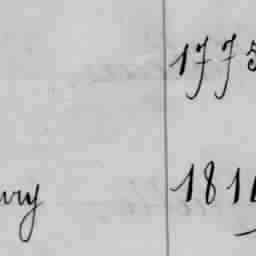 1775
ury 181